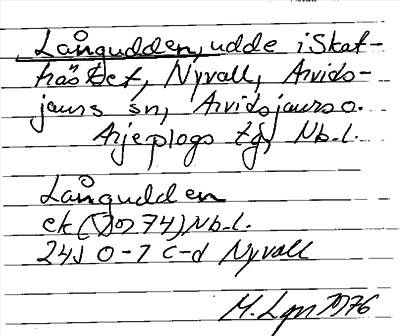 Långudden, udde i Skat-
träsket, Nyvall, Arvids-
jaurs sn, Arvidsjaurs o.
Arjeplogs tg, Nb.l.
Långudden
ek (1974) Nb.l.
24J 0-7 c-d Nyvall
M. Lgn 1976